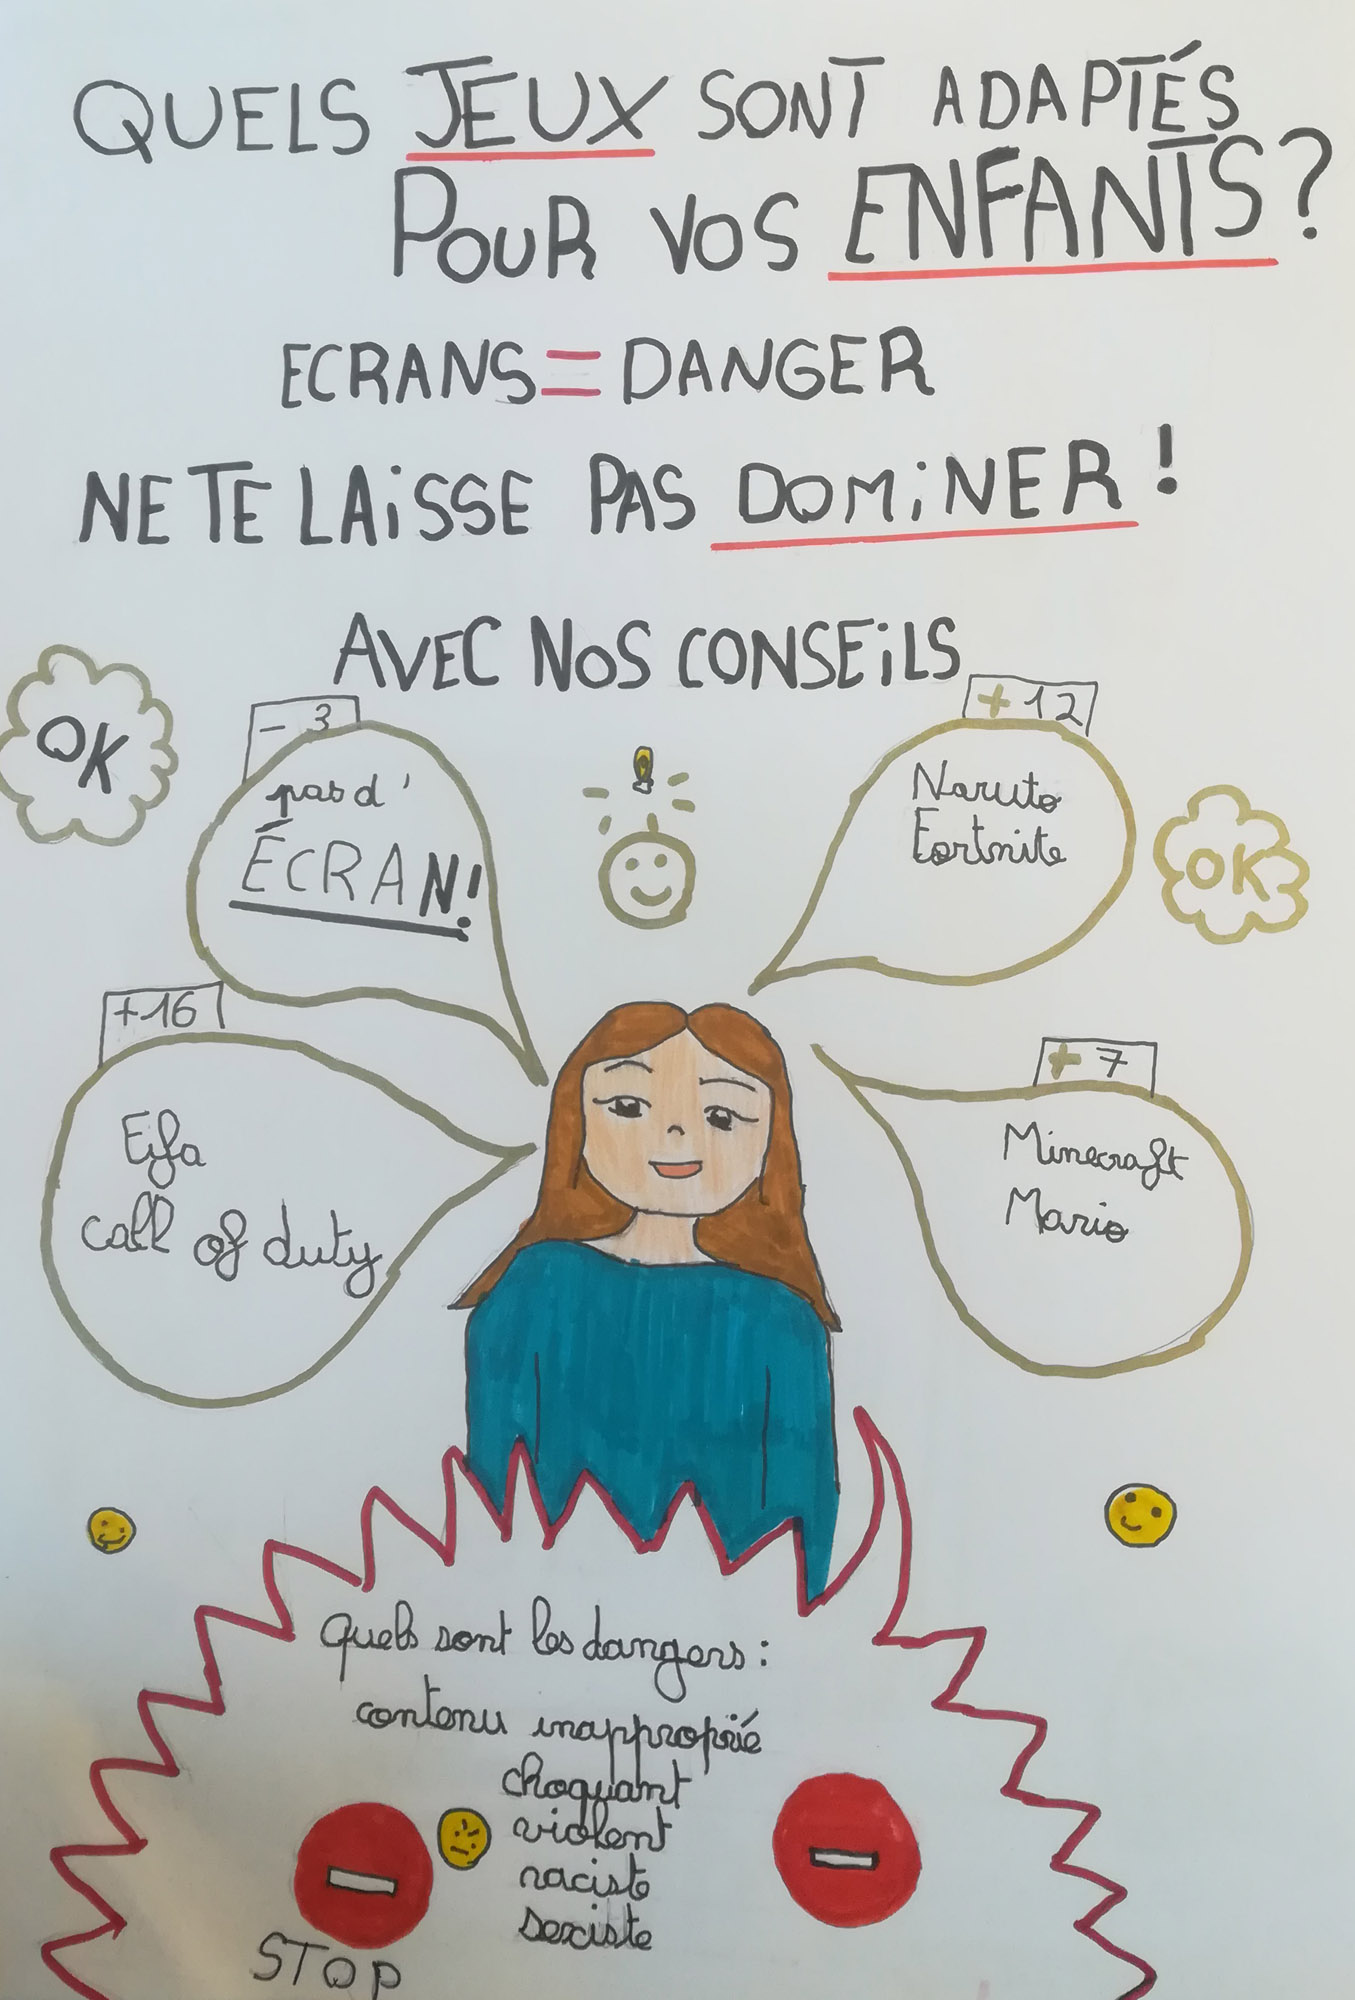 QUELS JEUX SONT ADAPTÉS
POUR VOS ENFANTS?
ECRANS = DANGER
NE TE LAISSE PAS DOMINER !
AVEC NOS CONSEILS
OK
- 3
pas d'
ÉCRAN!
+ 12
Naruto
Fortnite
OK
+16
Fifa
call of duty
+ 7
Minecraft
Mario
Quels sont les dangers :
contenu inapproprié
choquant
violent
raciste
sexiste
STOP